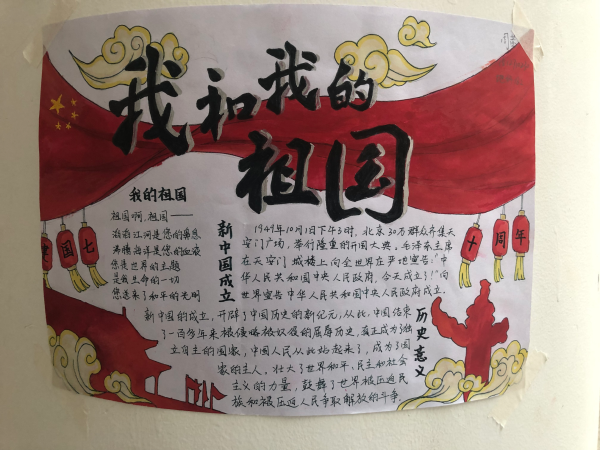 我和我的
祖国
建国七
十周年
我的祖国
祖国啊,祖国——
滔滔江河是您的鼻息
沸腾海洋是您的血液
您是世界的主题
是我生命的一切
您迎来了和平的光明
新中国成立
1949年10月1日下午3时,北京30万群众齐集天
安门广场,举行隆重的开国大典,毛泽东主席
在天安门城楼上向全世界庄严地宣告:"中
华人民共和国中央人民政府,今天成立了!"向
世界宣告中华人民共和国中央人民政府成立.
历史意义
新中国的成立,开辟了中国历史的新纪元,从此,中国结束
了一百多年来被侵略被奴役的屈辱历史,真正成为了独
立自主的国家,中国人民从此站起来了,成为了国
家的主人,壮大了世界和平、民主和社会
主义的力量,鼓舞了世界被压迫民
族和被压迫人民争取解放的斗争。